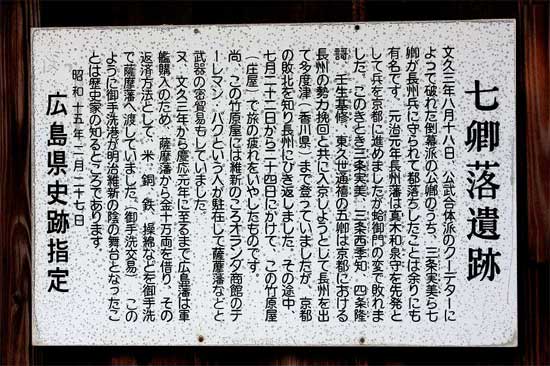 七卿落遺跡
文久三年八月十八日、公武合体派のクーデターに
よって破れた倒幕派の公卿のうち、三条実美ら七
卿が長州兵に守られて都落ちしたことは余りにも
有名です。元治元年長州藩は真木和泉守を先発と
して兵を京都に進めましたが蛤御門の変で敗れま
した。このきとき三条実美、三条西季知、四条隆
謌、壬生基修、東久世通禧の五卿は京都における
長州の勢力挽回と共に入京しようとして長州を出
て多度津（香川県）まで登っていましたが、京都
の敗北を知り長州にひき返しました。その途中、
七月二十二日から二十四日にかけて、この竹原屋
（庄屋）で旅の疲れをいやしたものです。
尚、この竹原屋には維新のころオランダ商館のテ
ーレマン・バクという人が駐在して薩摩藩などと
武器の密貿易もしていました。
又、文久三年から慶応元年に至るまで広島藩は軍
艦購入のため、薩摩藩から金十万両を借り、その
返済方法として、米、銅、鉄、操綿などを御手洗
で薩摩藩へ渡していました。（御手洗交易）この
ように御手洗港が明治維新の陰の舞台となったこ
とは歴史家の知るところであります。
昭和十五年二月二十七日
広島県史跡指定